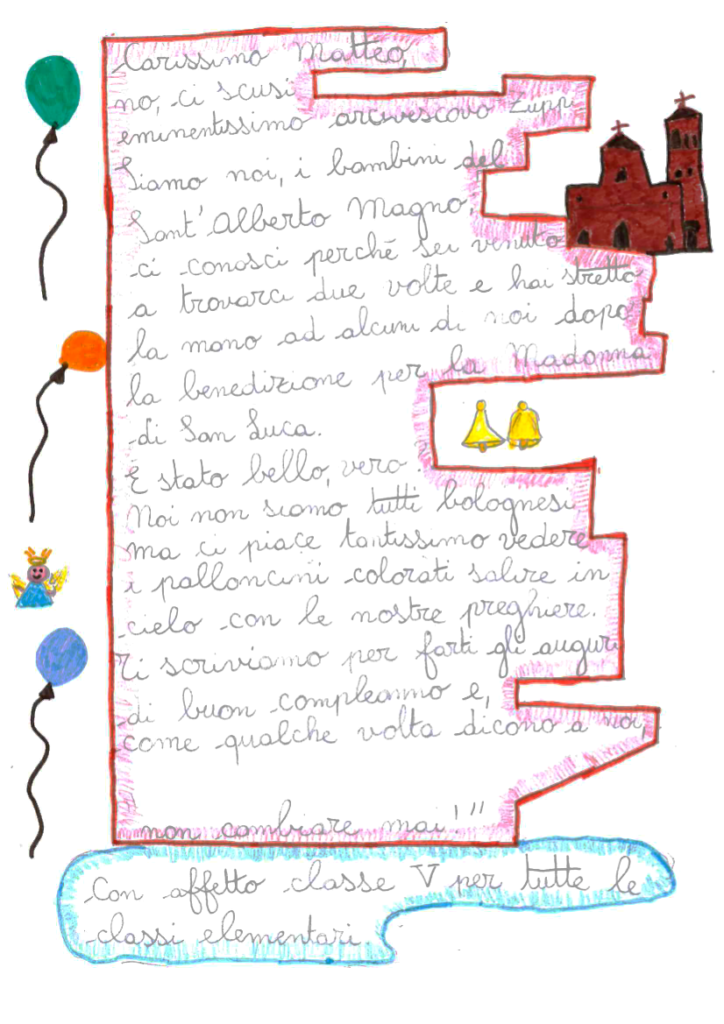 Carissimo Matteo,
no, ci scusi
eminentissimo arcivescovo Zuppi
Siamo noi, i bambini del
Sant'Alberto Magno,
ci conosci perché sei venuto
a trovarci due volte e hai stretto
la mano ad alcuni di noi dopo
la benedizione per la Madonna
di San Luca.
È stato bello, vero.
Noi non siamo tutti bolognesi,
ma ci piace tantissimo vedere
i palloncini colorati salire in
cielo con le nostre preghiere.
Ti scriviamo per farti gli auguri
di buon compleanno e,
come qualche volta dicono a noi,
"non cambiare mai!"
Con affetto classe V per tutte le
classi elementari.